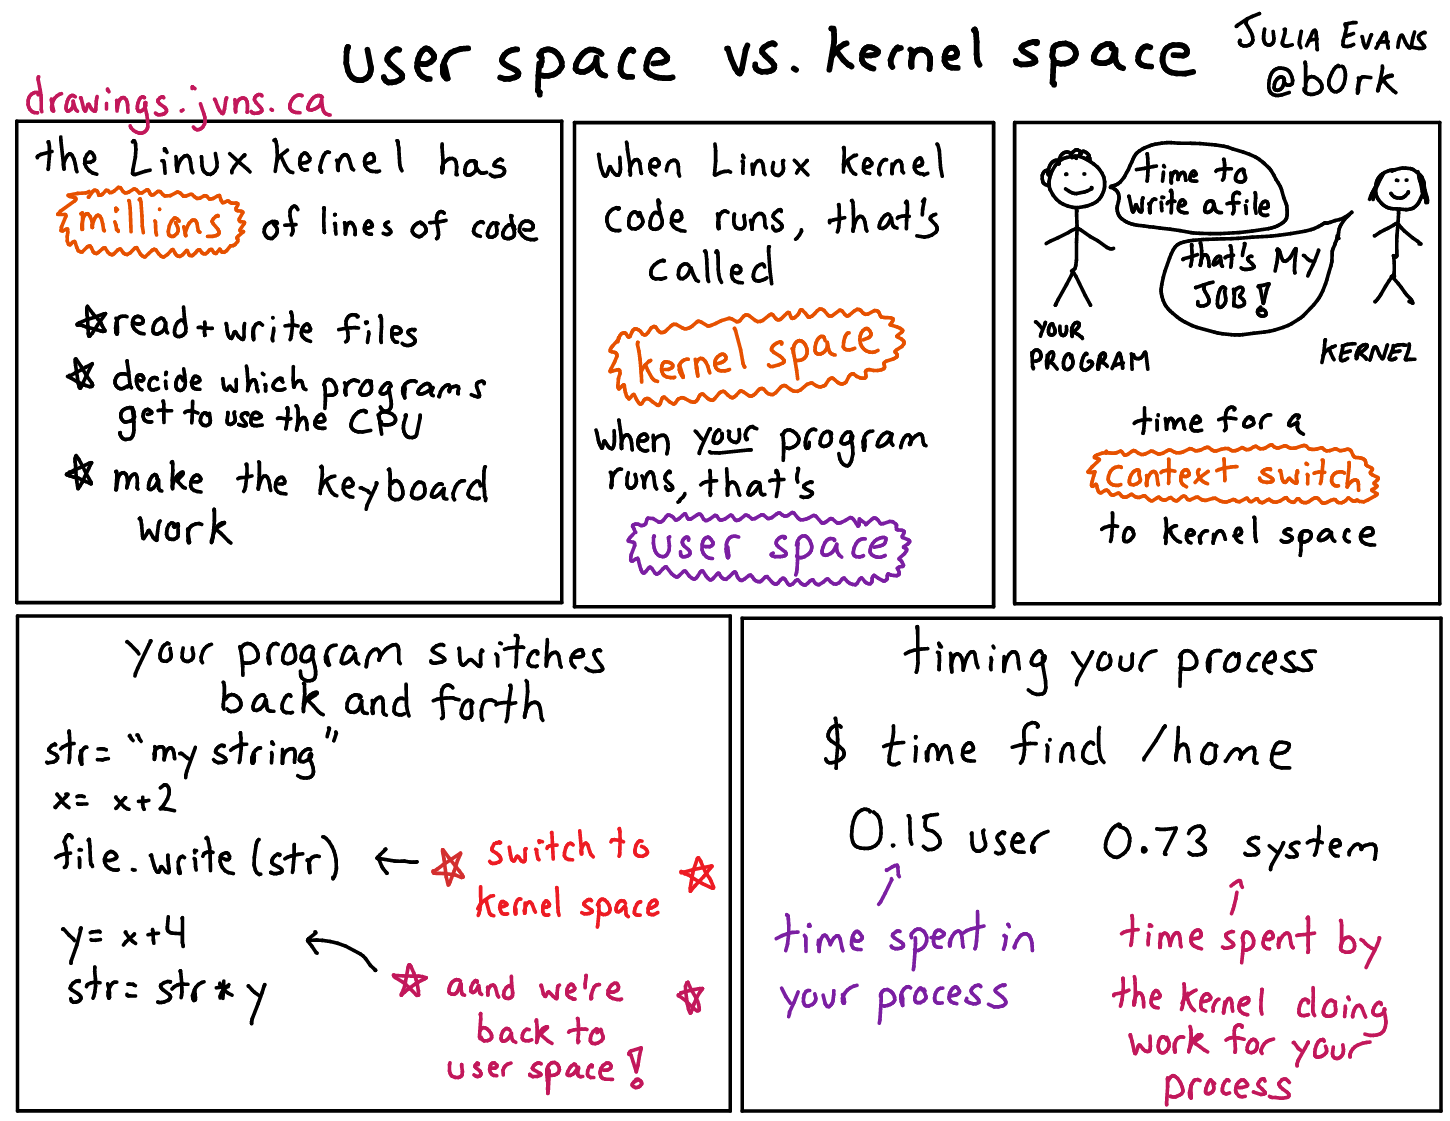 user space vs. kernel space
JULIA EVANS
@b0rk
drawings.jvns.ca
the Linux kernel has
millions of lines of code
read + write files
decide which programs
get to use the CPU
make the keyboard
work
when Linux kernel
code runs, that's
called
kernel space
when your program
runs, that's
user space
time to
write a file
that's MY
JOB!
YOUR
PROGRAM
KERNEL
time for a
context switch
to kernel space
your program switches
back and forth
str= "my string"
x= x+2
file.write(str) ← switch to
kernel space
y= x+4
str= str * y
aand we're
back to
user space!
timing your process
$ time find /home
0.15 user 0.73 system
time spent in
your process
time spent by
the kernel doing
work for your
process